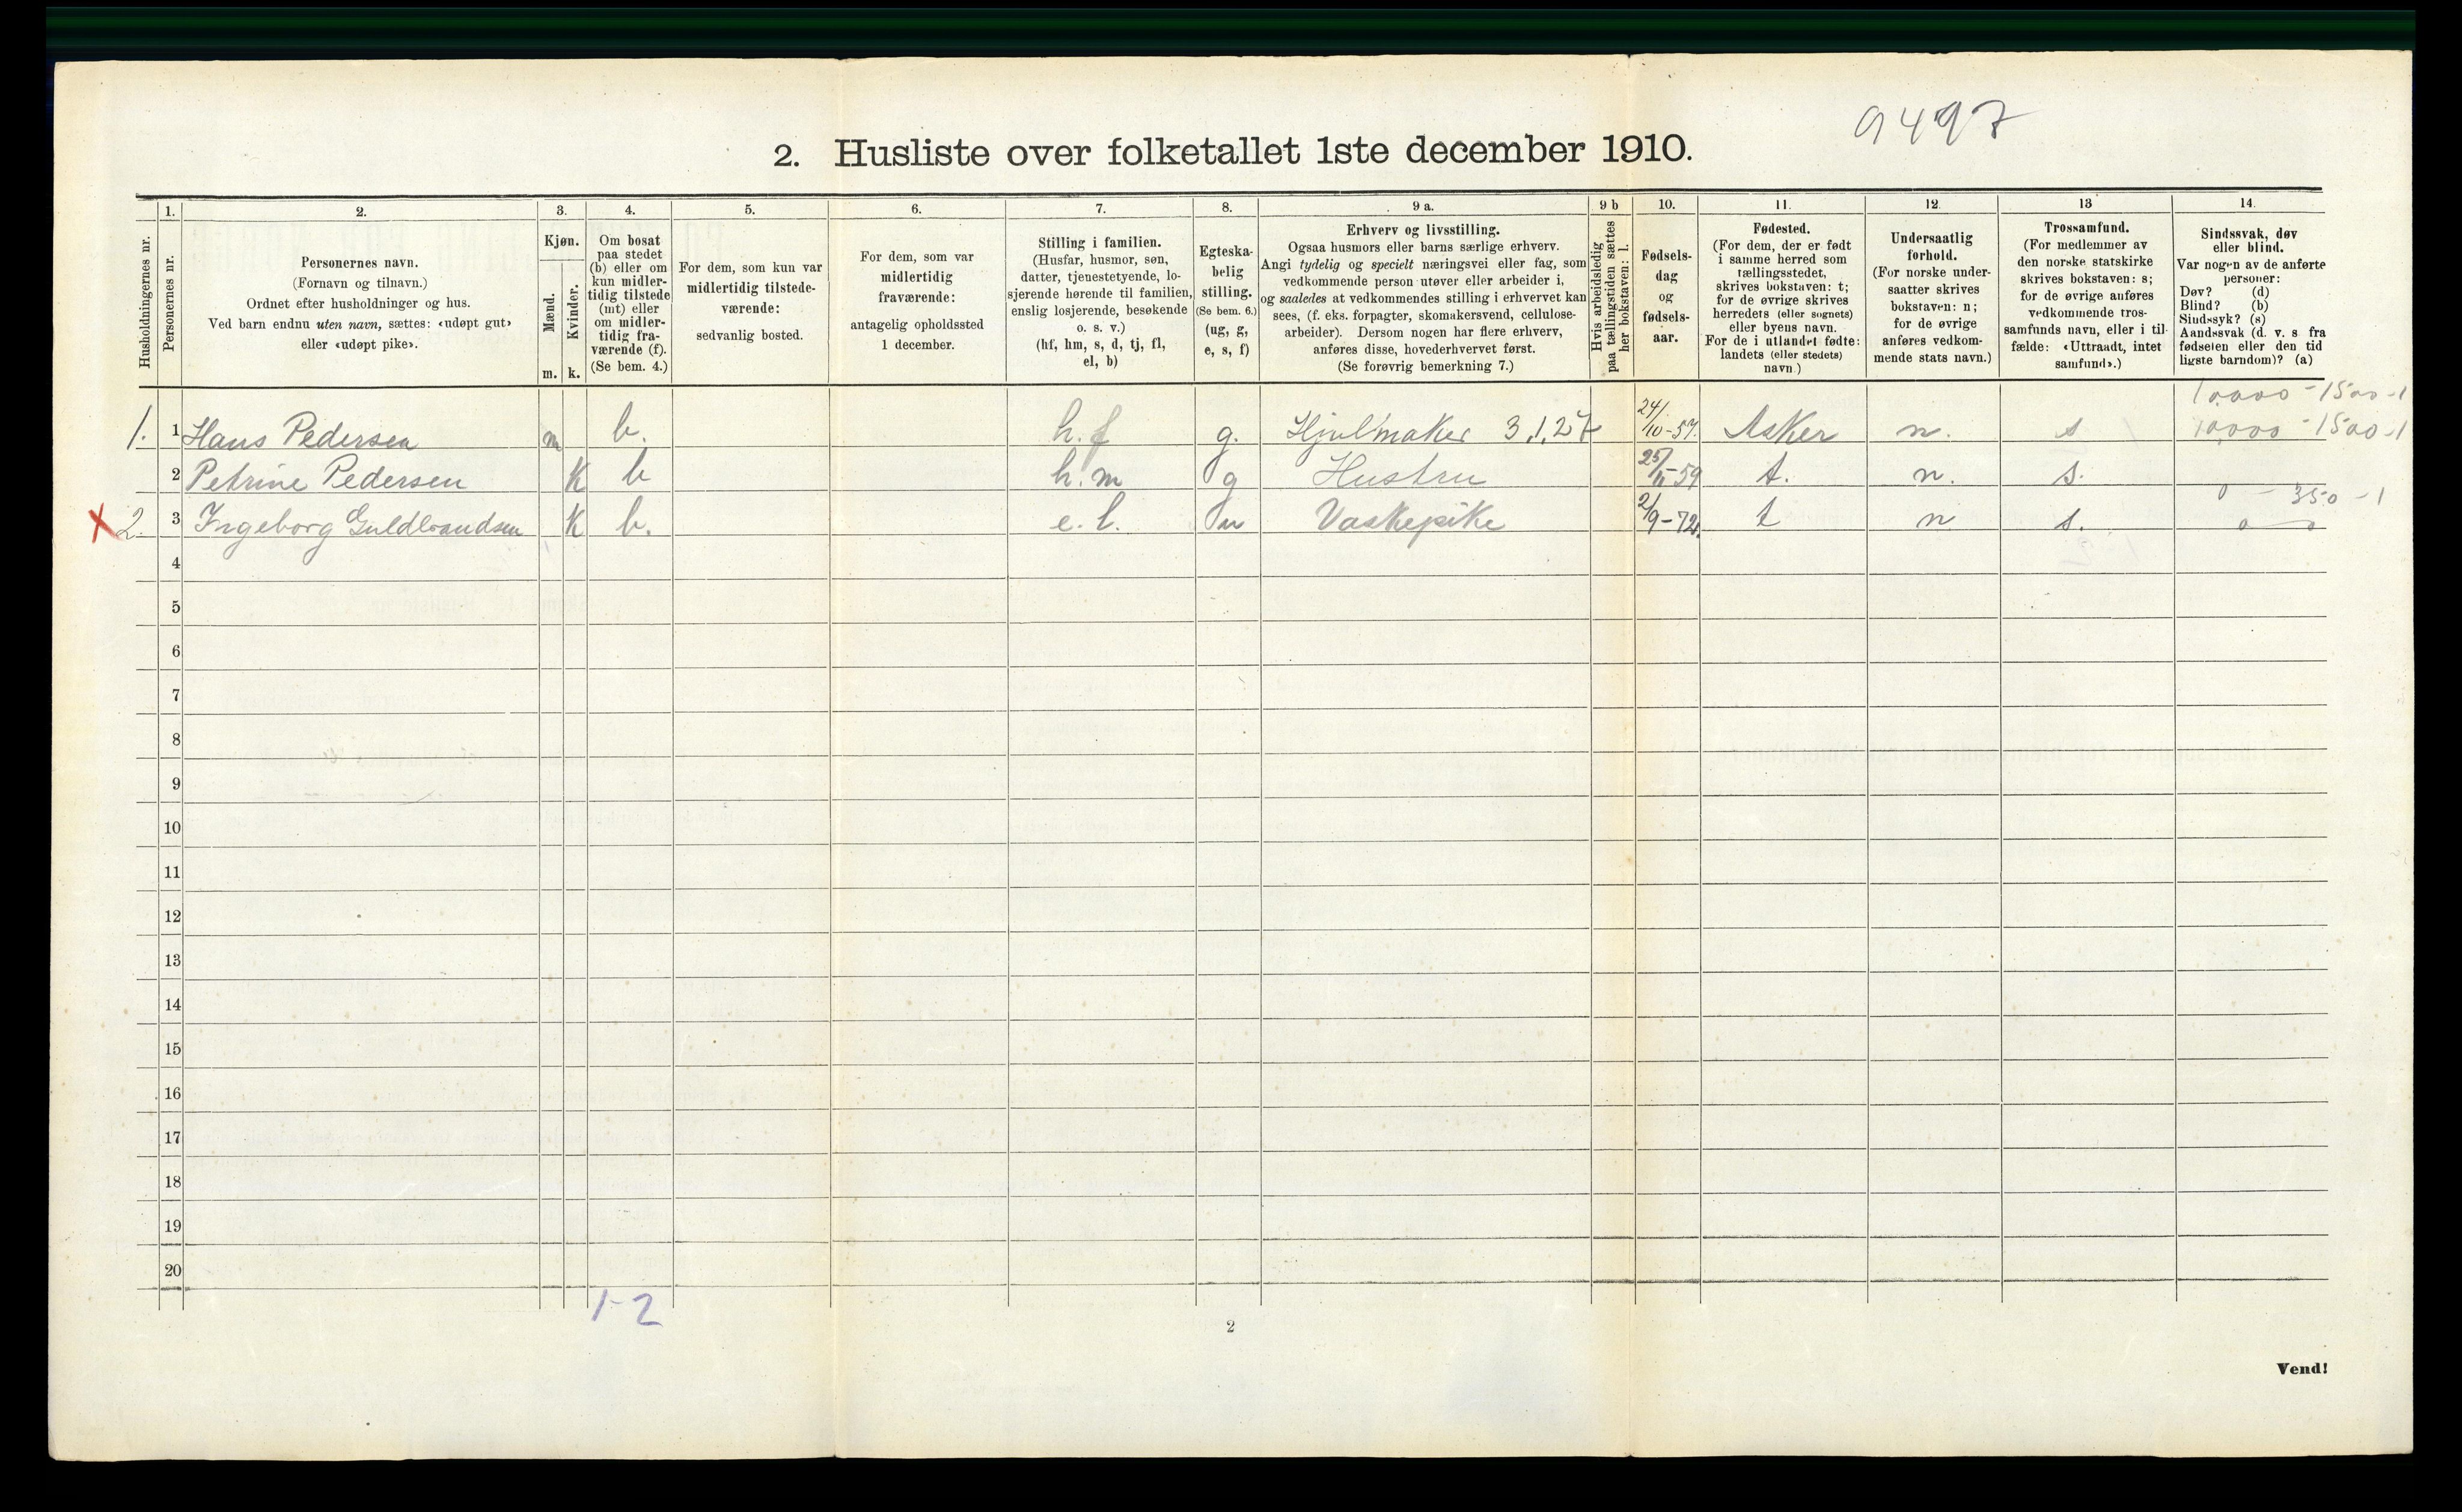 9497
2. Husliste over folketallet 1ste december 1910.
Husholdningernes nr.
1. Personernes nr.
2. Personernes navn.
(Fornavn og tilnavn.)
Ordnet efter husholdninger og hus.
Ved barn endnu uten navn, sættes: «udøpt gut»
eller «udøpt pike».
3. Kjøn.
Mænd. m.
Kvinder. k.
4. Om bosat
paa stedet
(b) eller om
kun midler-
tidig tilstede
(mt) eller
om midler-
tidig fra-
værende (f).
(Se bem. 4.)
5. For dem, som kun var
midlertidig tilstede-
værende:
sedvanlig bosted.
6. For dem, som var
midlertidig
fraværende:
antagelig opholdssted
1 december.
7. Stilling i familien.
(Husfar, husmor, søn,
datter, tjenestetyende, lo-
sjerende hørende til familien,
enslig losjerende, besøkende
o. s. v.)
(hf, hm, s, d, tj, fl,
el, b)
8. Egteska-
belig
stilling.
(Se bem. 6.)
(ug, g,
e, s, f)
9 a. Erhverv og livsstilling.
Ogsaa husmors eller barns særlige erhverv.
Angi tydelig og specielt næringsvei eller fag, som
vedkommende person utøver eller arbeider i,
og saaledes at vedkommendes stilling i erhvervet kan
sees, (f. eks. forpagter, skomakersvend, cellulose-
arbeider). Dersom nogen har flere erhverv,
anføres disse, hovederhvervet først.
(Se forøvrig bemerkning 7.)
9 b Hvis arbeidsledig
paa tællingstiden sættes
her bokstaven: l.
10. Fødsels-
dag
og
fødsels-
aar.
11. Fødested.
(For dem, der er født
i samme herred som
tællingsstedet,
skrives bokstaven: t;
for de øvrige skrives
herredets (eller sognets)
eller byens navn.
For de i utlandet fødte:
landets (eller stedets)
navn.)
12. Undersaatlig
forhold.
(For norske under-
saatter skrives
bokstaven: n;
for de øvrige
anføres vedkom-
mende stats navn.)
13 Trossamfund.
(For medlemmer av
den norske statskirke
skrives bokstaven: s;
for de øvrige anføres
vedkommende tros-
samfunds navn, eller i til-
fælde: «Uttraadt, intet
samfund».)
14. Sindssvak, døv
eller blind.
Var nogen av de anførte
personer:
Døv? (d)
Blind? (b)
Sindssyk? (s)
Aandssvak (d. v. s fra
fødselen eller den tid
ligste barndom)? (a)
10,000 - 1500 - 1
1. 1 Hans Pedersen m b. h. f g. Hjulmaker 3,1,27 24/10-57. Asker n. s 10,000 - 1500 - 1
2 Petrine Pedersen K b h. m g Hustru 25/11-59 t. n. s.
0 - 350 - 1
X 2. 3 Ingeborg Guldbrandsen K b. e. l. u Vaskepike 2/9-72. t n s. 0 0
4
5
6
7
8
9
10
11
12
13
14
15
16
17
18
19
20
1-2
2
Vend!